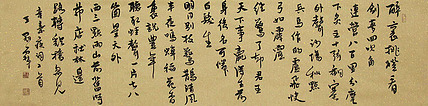 醉裏挑燈看
劍夢回吹角
連營八百里分麾
下炙五十弦翻塞
外聲沙場秋點
兵馬作的盧飛快
弓如霹靂
弦驚了却君王
天下事贏得生前
身後名可憐
白髮生
明月別枝驚鵲清風
半夜鳴蟬稻花香
裏說豐年
聽取蛙聲一片七八
箇星天外
兩三點雨山前舊時
茅店社林邊
路轉溪橋忽見
辛棄疾詞二首